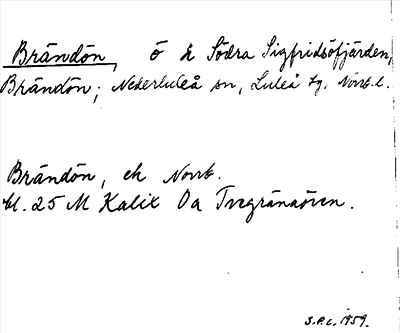 Brändön, ö i Södra Sigfridsöfjärden,
Brändön; Nederluleå sn, Luleå tg. Norrb. l.
Brändön, ek Norrb.
bl. 25 M Kalix Oa Tregränaören.
S.P.L. 1959.